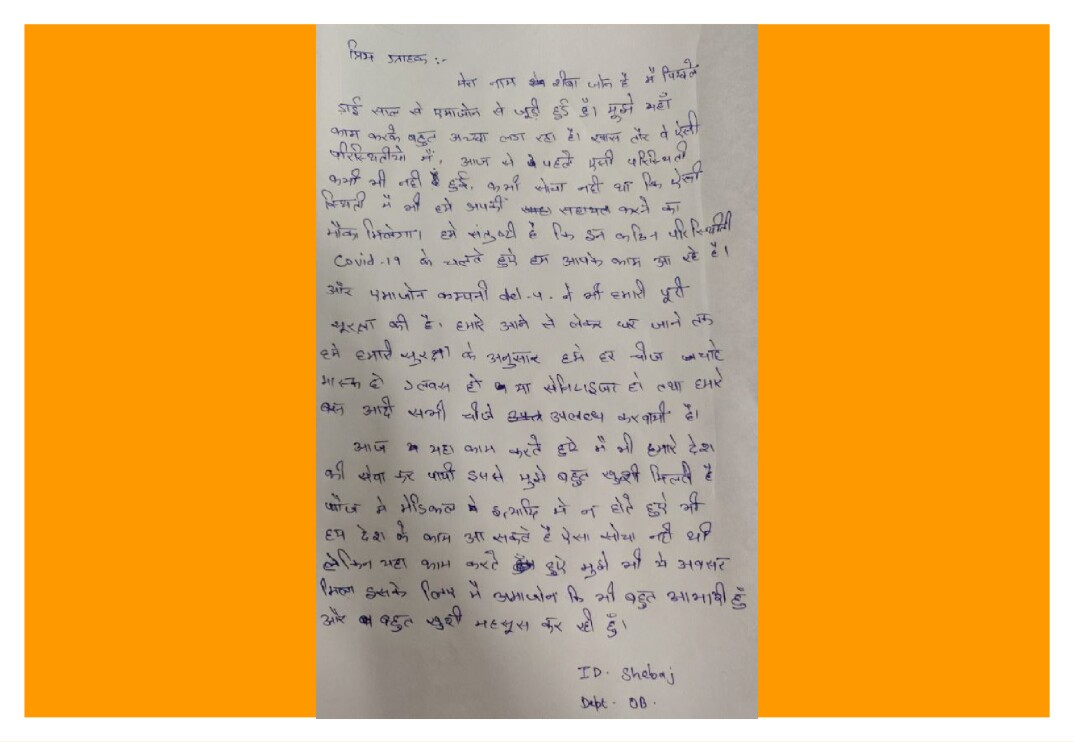 प्रिय ग्राहक :-
मेरा नाम शीबा जोन है मैं पिछले
ढाई साल से एमाजोन से जूड़ी हुई हूँ। मुझे यहाँ
काम करके बहुत अच्छा लग रहा है। खास तौर पे ऐसी
परिस्थितीयो में, आज से पहले ऐसी परिस्थिती
कभी भी नही हुई, कभी सोचा नही था कि ऐसी
स्थिती में भी हमे आपकी सहायता करने का
मौका मिलेगा। हमे संतुष्टी है कि इन कठिन परिस्थिती
Covid-19 के चलते हुऐ हम आपके काम आ रहे है।
और एमाजोन कम्पनी del-4. ने भी हमारी पूरी
सूरक्षा की है। हमारे आने से लेकर घर जाने तक
हमे हमारी सुरक्षा के अनुसार हमे हर चीज चाहे
मास्क हो ग्लवस हो या सेनिटाइजर हो तथा हमारे
आदी सभी चीजे उपलब्ध करवायी है।
आज यहा काम करते हुऐ मैं भी हमारे देश
की सेवा कर पायी इससे मुझे बहुत खुशी मिलती है
फौज मे मेडिकल इत्यादि मे न होते हुऐ भी
हम देश के काम आ सकते है ऐसा सोचा नही थी
लेकिन यहा काम करते हुऐ मुझे भी ये अवसर
मिला इसके लिए मै अमाजोन कि भी बहुत आभारी हुँ
और बहुत खुशी महसूस कर रही हुँ।
ID. Shebaj
Dept. OB.